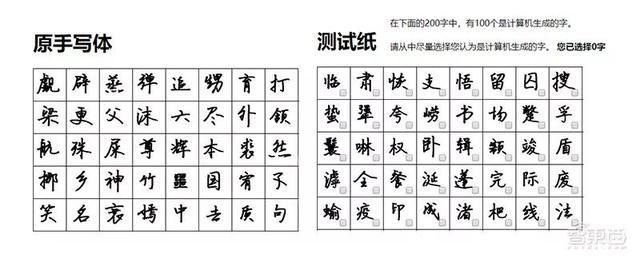 原手写体
辟 蒸 弹 追 甥 育 打
梁 更 父 沫 六 尽 外 领
航 殊 尿 尊 辉 本 裘 然
挪 乡 神 竹 噩 国 宥
笑 名 哀 嫣 中 去 质 句
测试纸
在下面的200字中，有100个是计算机生成的字。
请从中尽量选择您认为是计算机生成的字。 您已选择0字
临 肃 恢 支 悟 留 囚 搜
蛰 犟 夸 崂 书 场 蹩 孚
鬓 啉 权 卧 辑 颖 竣 盾
滹 全 餐 涎 蓬 完 际 废
蝓 疫 印 成 渚 杷 线 法
智东西